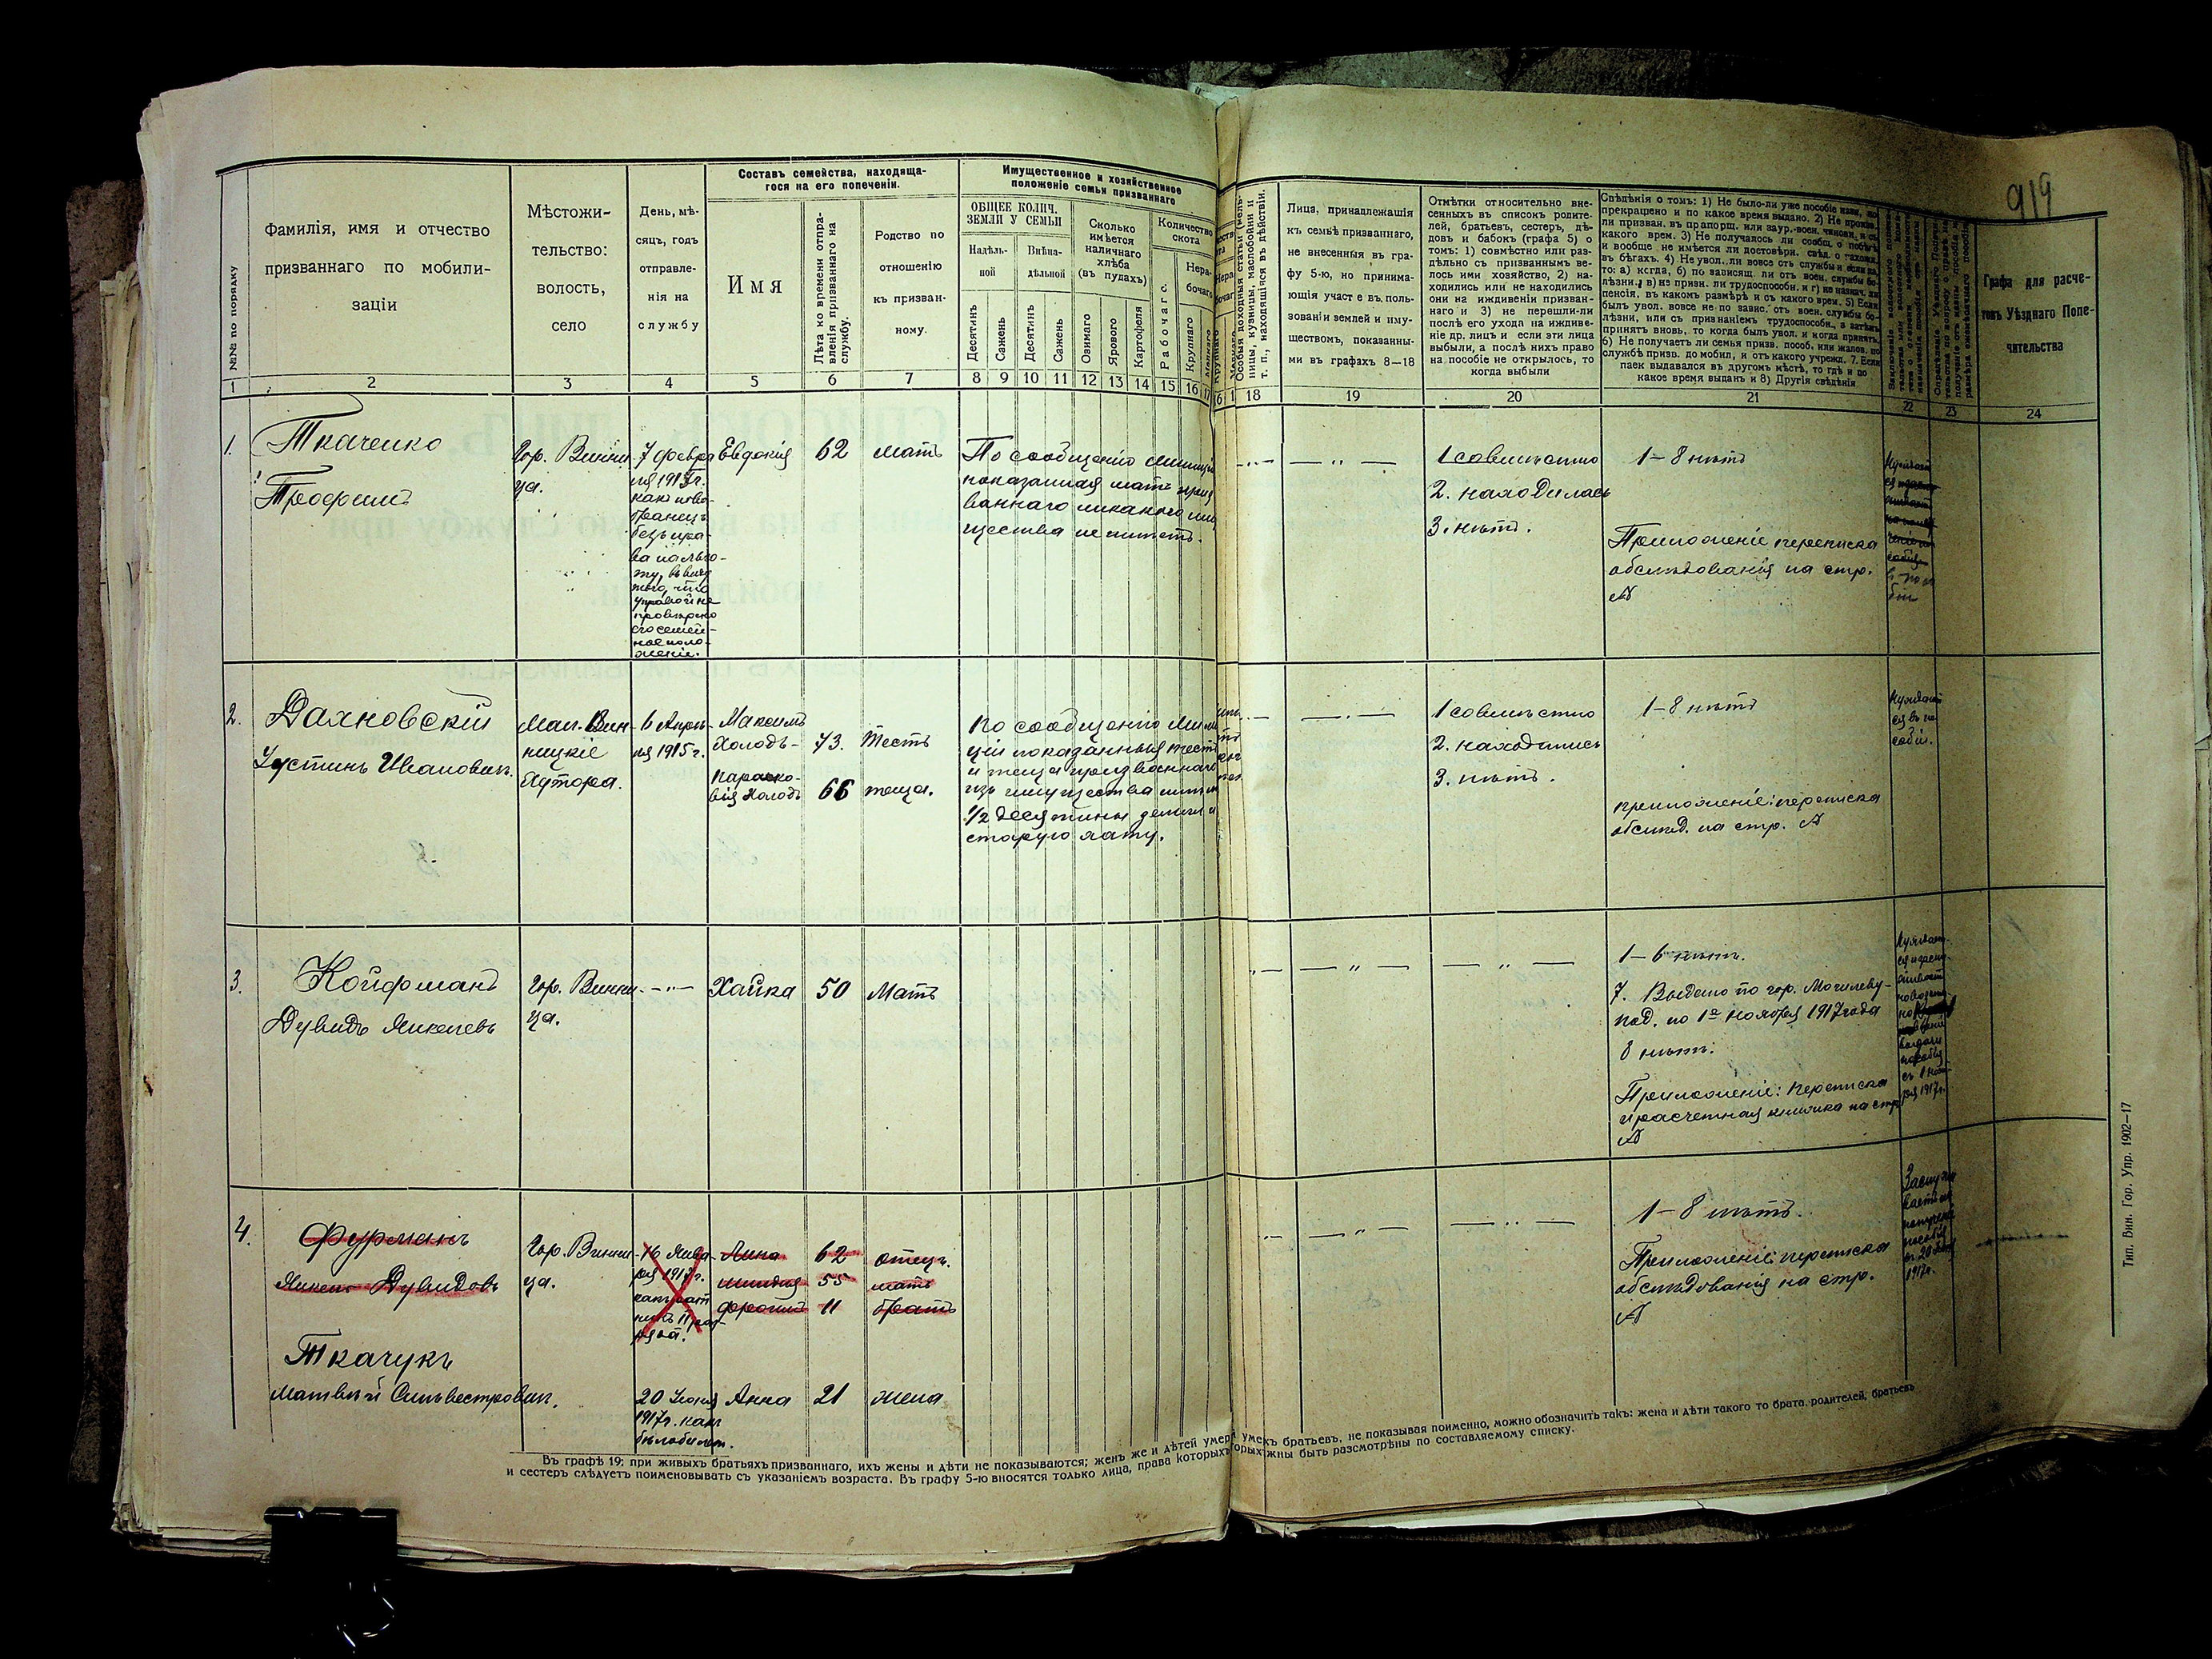 919
№№ по порядку
Фамилія, имя и отчество
призваннаго по мобили-
заціи
Мѣстожи-
тельство:
волость,
село
День, мѣ-
сяцъ, годъ
отправле-
нія на
службу
Составъ семейства, находяща-
гося на его попеченіи.
Имя
Лѣта ко времени отпра-
вленія призваннаго на
службу.
Родство по
отношенію
къ призван-
ному.
Имущественное и хозяйственное
положеніе семьи призваннаго
ОБЩЕЕ КОЛИЧ.
ЗЕМЛИ У СЕМЬИ
Надѣль-
ной
Внѣна-
дѣльной
Десятинъ
Сажень
Десятинъ
Сажень
Сколько
имѣется
наличнаго
хлѣба
(въ пудахъ)
Озимаго
Ярового
Картофеля
Количество
скота
Рабочаго.
Нера-
бочаго
Крупнаго
Особыя доходныя статьи (мель-
ницы, кузницы, маслобойни и
т. п., находящіяся въ дѣйствіи.
Лица, принадлежащія
къ семьѣ призваннаго,
не внесенныя въ гра-
фу 5-ю, но принима-
ющія участ е въ поль-
зованіи землей и иму-
ществомъ, показанны-
ми въ графахъ 8—18
Отмѣтки относительно вне-
сенныхъ въ списокъ родите-
лей, братьевъ, сестеръ, дѣ-
довъ и бабокъ (графа 5) о
томъ: 1) совмѣстно или раз-
дѣльно съ призваннымъ ве-
лось ими хозяйство, 2) на-
ходились или не находились
они на иждивеніи призван-
наго и 3) не перешли-ли
послѣ его ухода на иждиве-
ніе др. лицъ и если эти лица
выбыли, а послѣ нихъ право
на пособіе не открылось, то
когда выбыли
Свѣдѣнія о томъ: 1) Не было-ли уже пособіе
прекращено и по какое время выдано. 2) Не
ли призван. въ прапорщ. или заур.-воен. чиновн. и съ
какого врем. 3) Не получалось ли сообщ. о побѣгѣ
и вообще не имѣется ли достовѣрн. свѣд. о
въ бѣгахъ. 4) Не увол. ли вовсе отъ службы и если да,
то: а) когда, б) по зависящ. ли отъ воен. службы бо-
лѣзни, в) не призн. ли трудоспособн. и г) не назнач. ли
пенсія, въ какомъ размѣрѣ и съ какого врем. 5) Если
былъ увол. вовсе не по завис. отъ воен. службы бо-
лѣзни, или съ признаніемъ трудоспособн., а затѣмъ
принятъ вновь, то когда былъ увол. и когда принятъ.
6) Не получаетъ ли семья призв. пособ. или жалов. по
службѣ призв. до мобил. и отъ какого учрежд. 7. Если
паек выдавался въ другомъ мѣстѣ, то гдѣ и по
какое время выданъ и 8) Другія свѣдѣнія
Графа для расче-
товъ Уѣзднаго Попе-
чительства
1 2 3 4 5 6 7 8 9 10 11 12 13 14 15 16 17 18 19 20 21 22 23 24
1.
Ткаченко
Трофимъ
Гор. Винни-
ца.
7 февра
ля 1915 г.
какъ ново-
бранецъ
безъ пра-
ва на льго-
ту, въ виду
того, что
управой не
провѣрено
его семей-
ное поло-
женіе.
Евдокія
62
мать
По сообщенію Милиціи
показанная мать приз
ваннаго никакого иму
щества не имѣетъ.
1 совмѣстно
2. находилась
3. нѣтъ.
1—8 нѣтъ
Приложеніе переписка
обслѣдованія на стр.
№
2.
Даяновскій
Устинъ Ивановичъ.
Мал. Вин-
ницкіе
Хутора.
6 Апрѣ-
ля 1915 г.
Максимъ
Холодъ-
73.
Тесть
Параско-
вія Холодъ
66
теща.
По сообщенію Мили
ціи показанныя тесть
и теща призваннаго
изъ имущества имѣютъ
1/2 десятины земли и
старую хату.
1 совмѣстно
2. находились
3. нѣтъ.
1—8 нѣтъ
приложеніе: переписка
обслѣд. на стр. №
Нуждает
ся въ по
собіи.
3.
Койфманъ
Дувидъ Янкелевъ
Гор. Винни-
ца.
Хайка
50
Мать
1—6 нѣтъ.
7. Выдано по гор. Могилеву-
под. по 1е ноября 1917 года
8 нѣтъ.
Приложеніе: переписка
и расчетная книжка на стр
№
4.
Фурманъ
Янкель Дувидовъ
Гор. Винни-
ца.
16 Янва-
ря 1917 г.
какъ рат
никъ II раз-
ряда.
62
отецъ.
55
мать
11
братъ
1—8 нѣтъ.
Приложеніе: переписка
обслѣдованія на стр.
№
Ткачукъ
Матвѣй Сильвестровичъ.
20 Іюня
1917 г. какъ
бѣлобилет.
Анна
21
жена
Въ графѣ 19; при живыхъ братьяхъ призваннаго, ихъ жены и дѣти не показываются; женъ же и дѣтей умершихъ братьевъ, не показывая поименно, можно обозначить такъ: жена и дѣти такого то брата. родителей, братьевъ
и сестеръ слѣдуетъ поименовывать съ указаніемъ возраста. Въ графу 5-ю вносятся только лица, права которыхъ должны быть разсмотрѣны по составляемому списку.
Тип. Вин. Гор. Упр. 1902—17